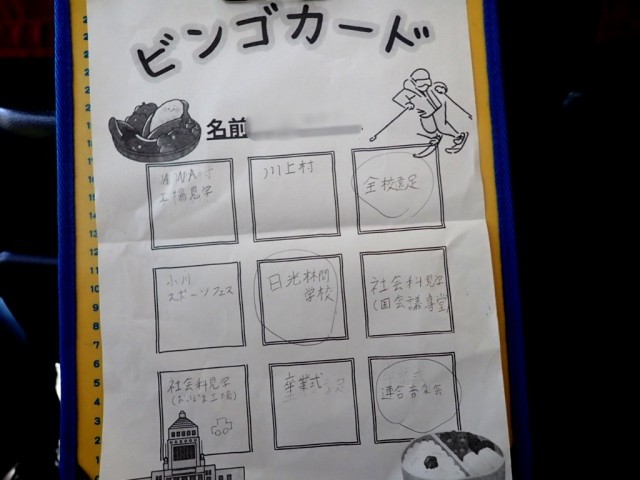 ビンゴカード
名前
工場見学
川上村
全校遠足
小川
スポーツフェス
日光林間
学校
社会科見学
(国会議事堂)
社会科見学
卒業式
連合音楽会